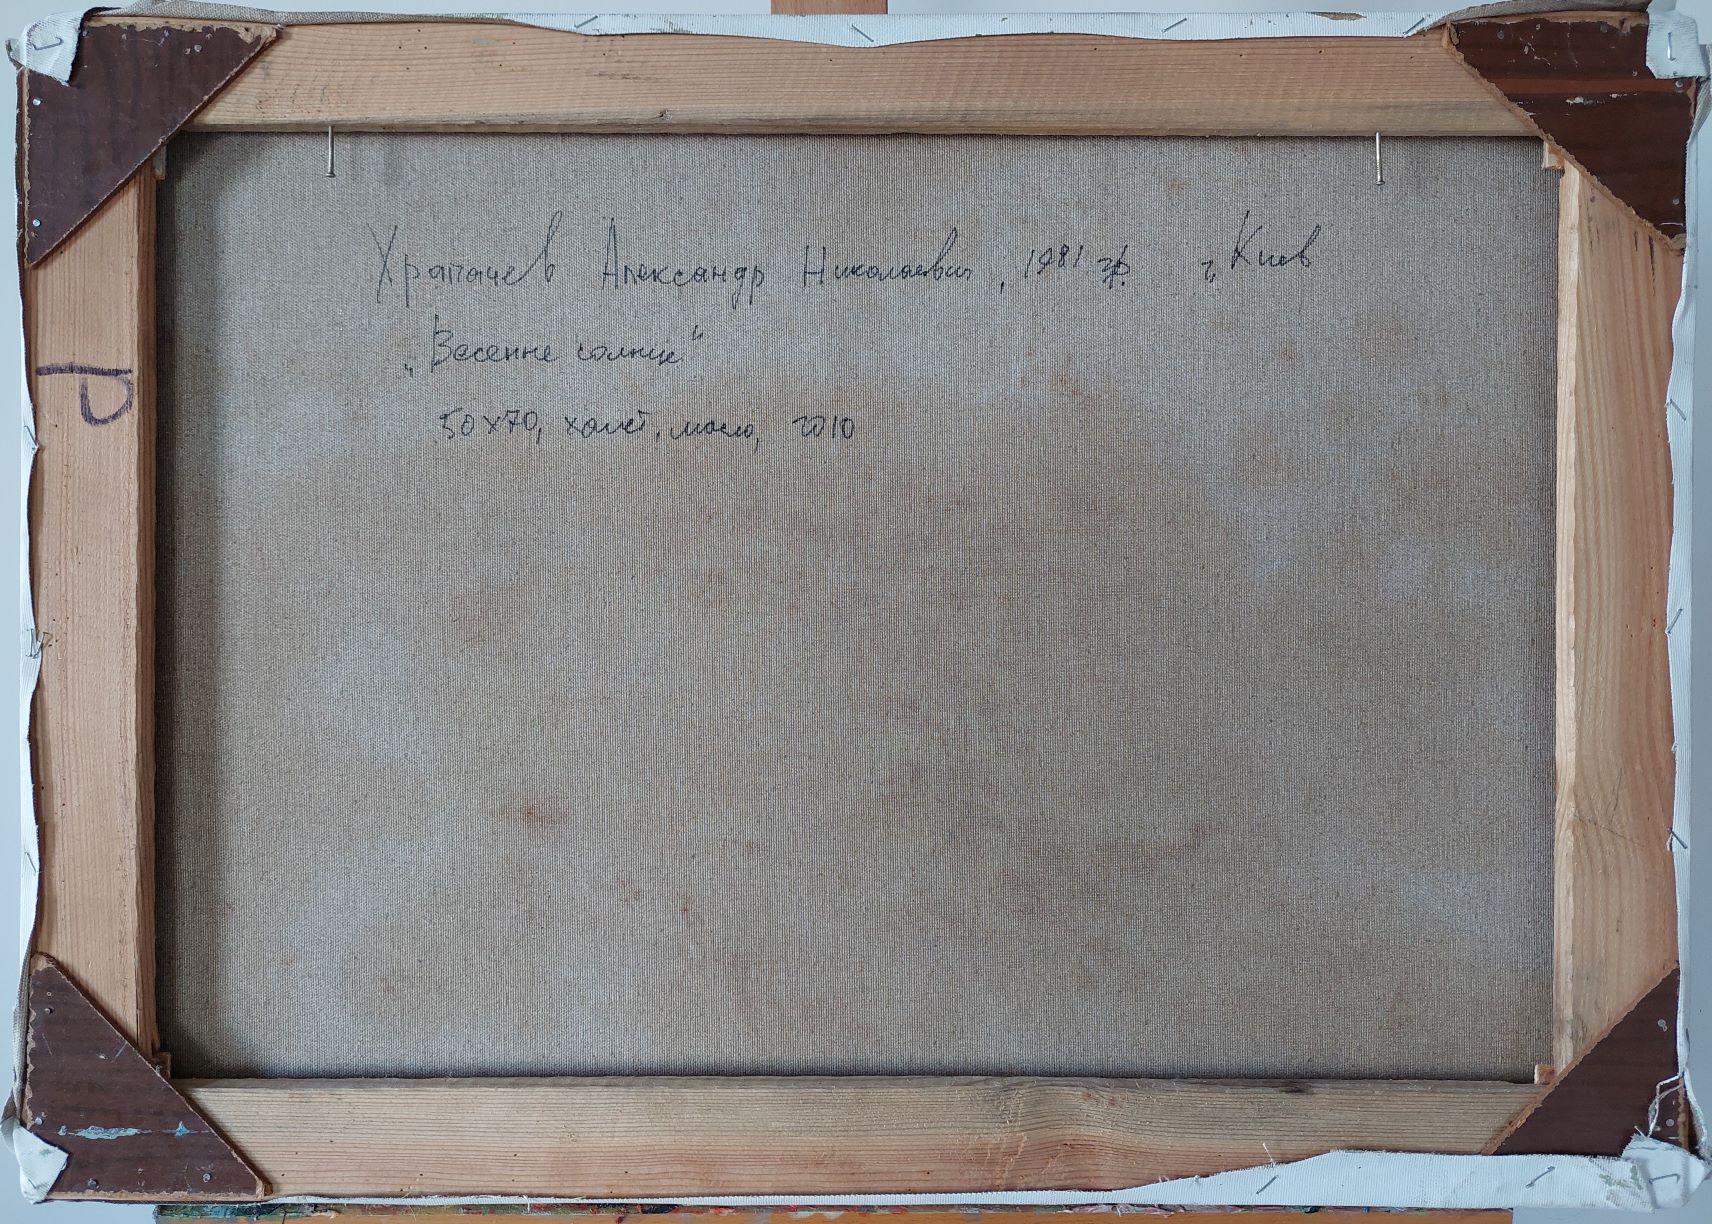 Храпачев Александр Николаевич, 1981 г.р. г. Киев
„Весенне солнце"
50х70, холст, масло, 2010
P